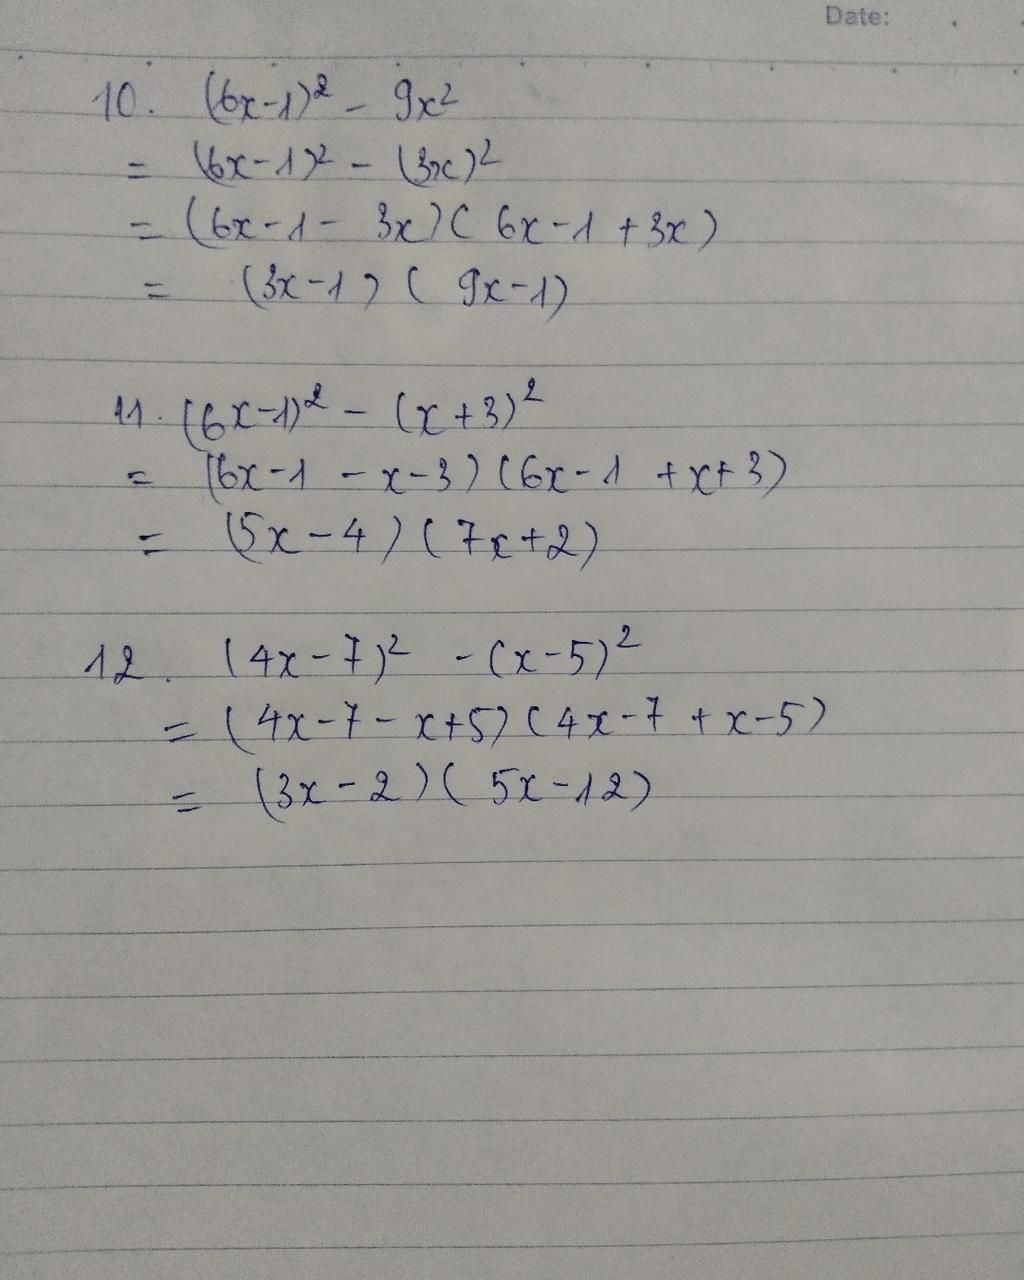 Date:
10. (6x-1)² - 9x²
= (6x-1)² - (3x)²
= (6x-1- 3x)( 6x-1 +3x)
= (3x-1) ( 9x-1)
11. (6x-1)² - (x+3)²
= (6x-1 -x-3)(6x-1 +x+3)
= (5x-4)(7x+2)
12. (4x-7)² -(x-5)²
= (4x-7- x+5)(4x-7 +x-5)
= (3x-2)( 5x-12)